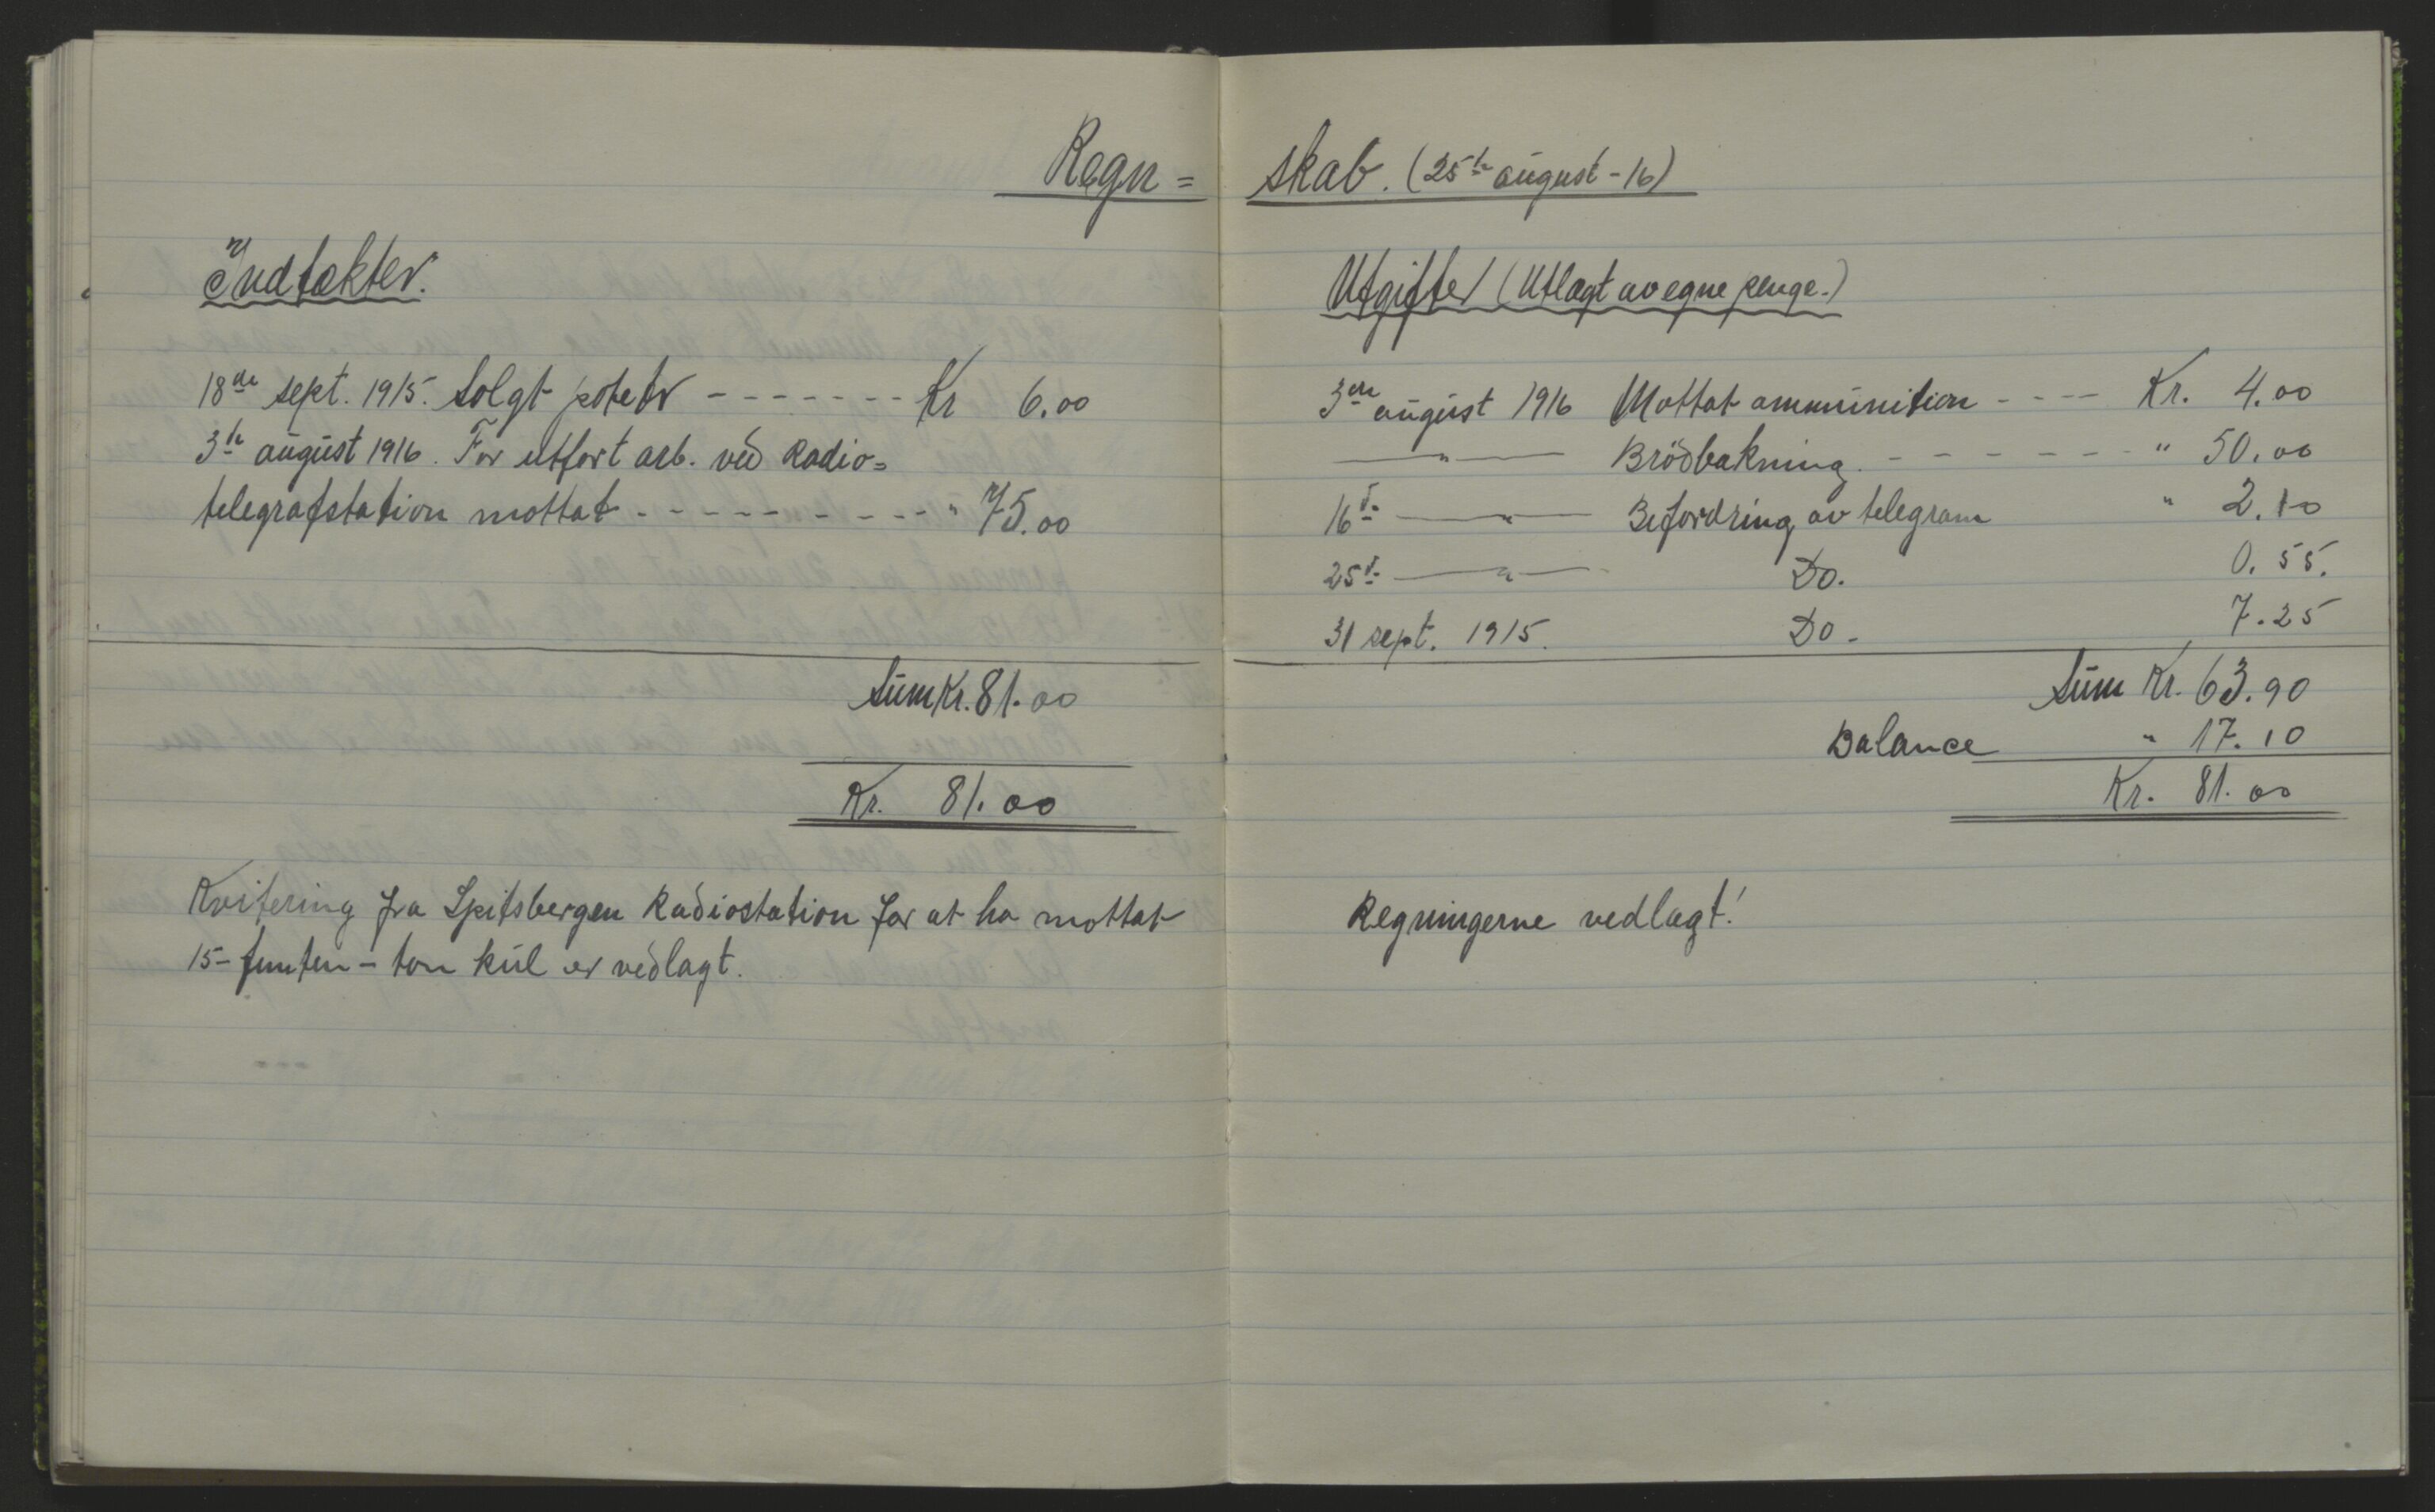 Regn= skab. (25de august-16)
Indtækter.
18de sept. 1915. Solgt poteter - - - - - - - Kr 6.00
3de august 1916. For utført arb. ved Radio=
telegrafstation mottat - - - - - - - - - - " 75.00
Sum Kr. 81.00
Kr. 81.00
Kvitering fra Spitsbergen Radiostation for at ha mottat
15-femten-ton kul er vedlagt.
Utgifter (Utlagt av egne penge.)
3die august 1916 Mottat ammunition - - - - Kr. 4.00
—"— Brödbakning. - - - - - - - " 50.00
16de —"— Befordring av telegram " 2.10
25de —"— Do. 0.55.
31 sept. 1915. Do. 7.25
Sum Kr. 63.90
Balance " 17.10
Kr. 81.00
Regningerne vedlagt!